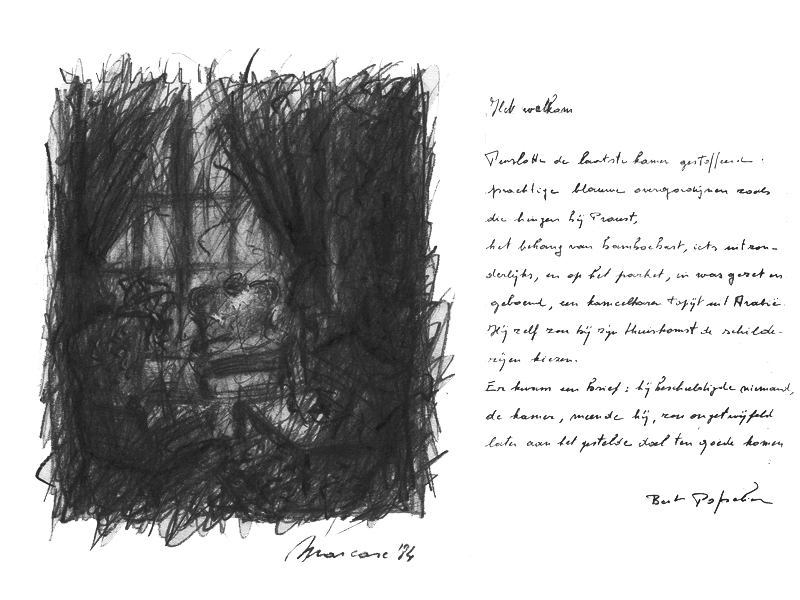 Het welkom
Tenslotte de laatste kamer gestoffeerd:
prachtige blauwe overgordijnen zoals
die hingen bij Proust,
het behang van bamboebast, iets uitzon-
derlijks, en op het parket, in was gezet en
geboend, een kameelharen tapijt uit Arabië.
Hij zelf zou bij zijn thuiskomst de schilde-
rijen kiezen.
Er kwam een brief: hij beschuldigde niemand,
de kamer, meende hij, zou ongetwijfeld
later aan het gestelde doel ten goede komen
Bert Popelier
'94